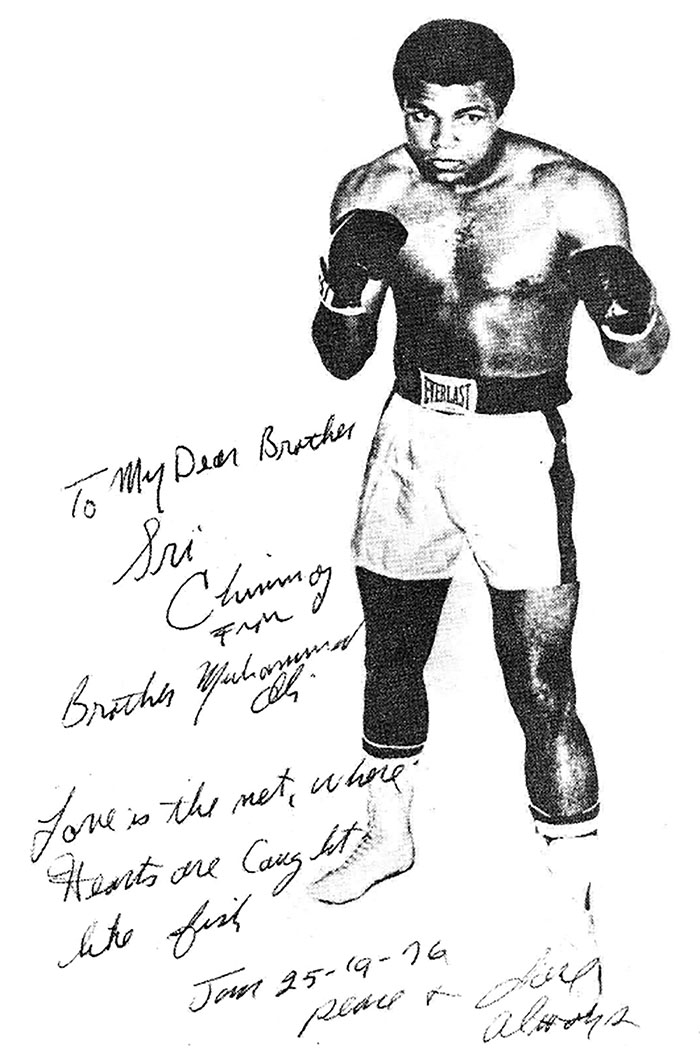 EVERLAST
To My Dear Brother
Sri
Chinmoy
From
Brother Muhammad
Ali
Love is the net, where
Hearts are Caught
like fish
Jan 25-19-76
peace + Love
Always